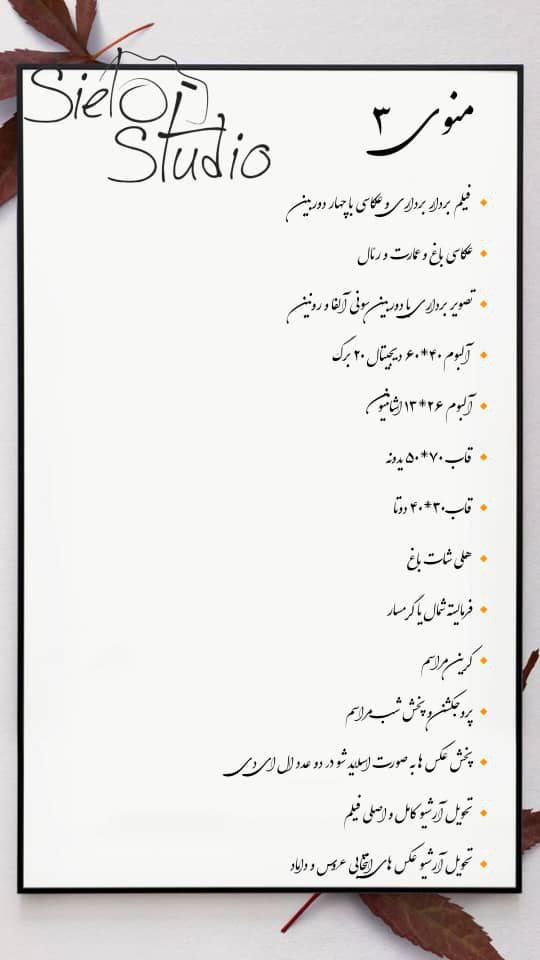 Sieloi
Studio
منوی ۳
فیلم بردار برداری و عکاسی با چهار دوربین
عکاسی باغ و عمارت و رئال
تصویر برداری با دوربین سونی آلفا و رونین
آلبوم ۴۰*۶۰ دیجیتال ۲۰ برگ
آلبوم ۲۶*۱۳ اشانتیون
قاب ۷۰*۵۰ یدونه
قاب۳۰*۴۰ دوتا
هلی شات باغ
فرمالیته شمال یا گرمسار
کرین مراسم
پروجکشن و پخش شب مراسم
پخش عکس ها به صورت اسلاید شو در دو عدد ال ای دی
تحویل آرشیو کامل و اصلی فیلم
تحویل آرشیو عکس های انتخابی عروس و داماد